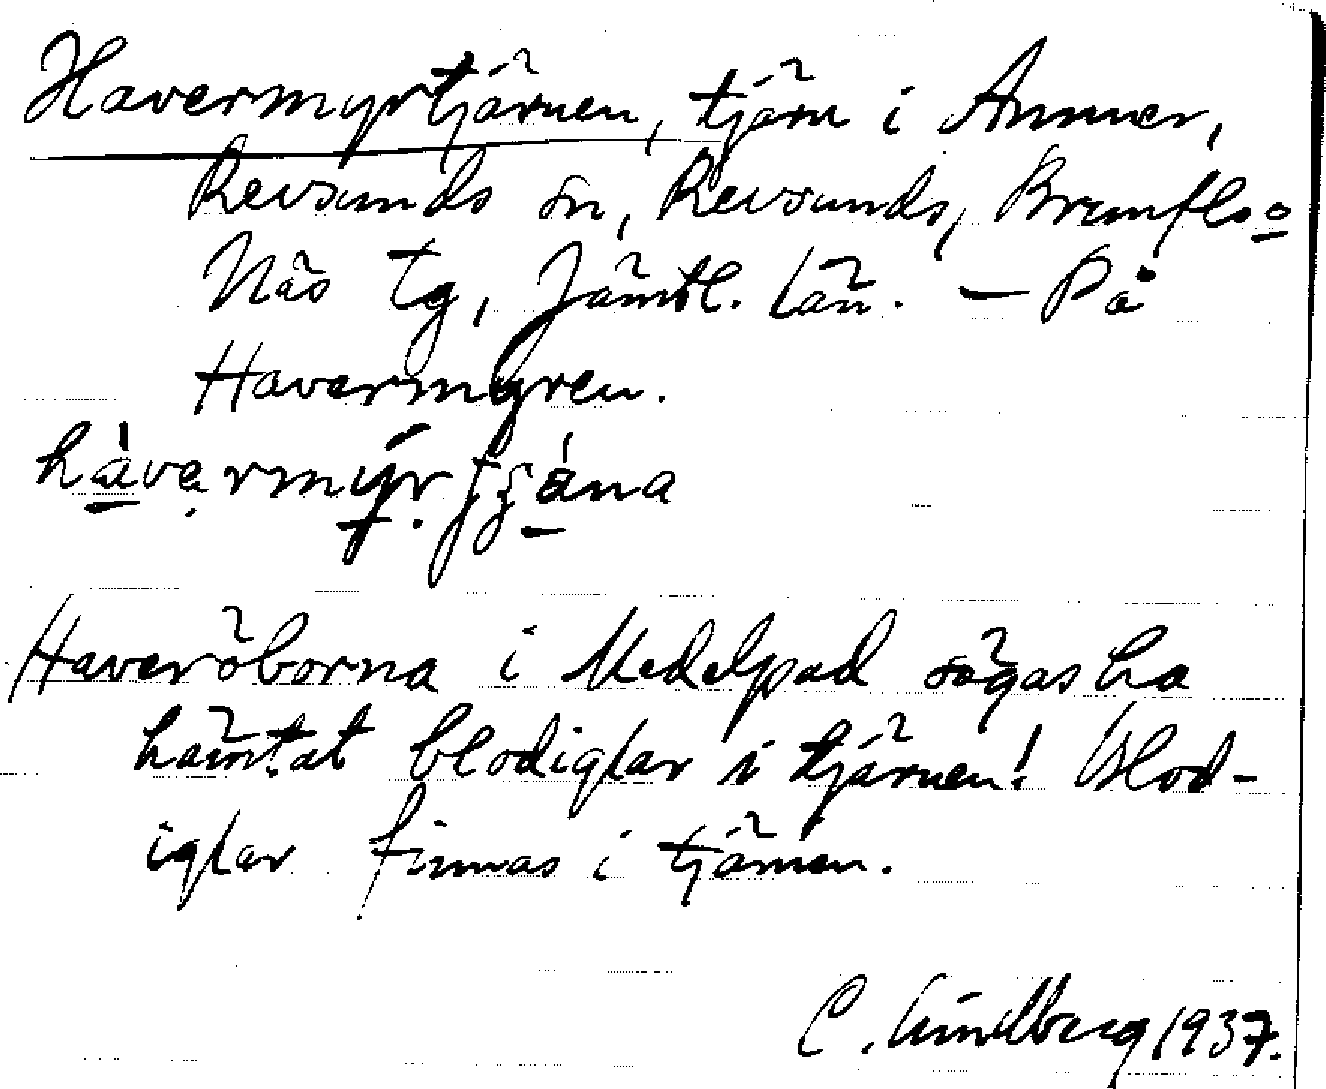 Havermyrtjärnen, tjärn i Anmer,
Revsunds sn, Revsunds, Brunflo o
Näs tg, Jämtl. län. — På
Havermyren.
Haveröborna i Medelpad sägas ha
hämtat blodiglar i tjärnen! Blod-
iglar finnas i tjärnen.
C. Lindberg 1937.